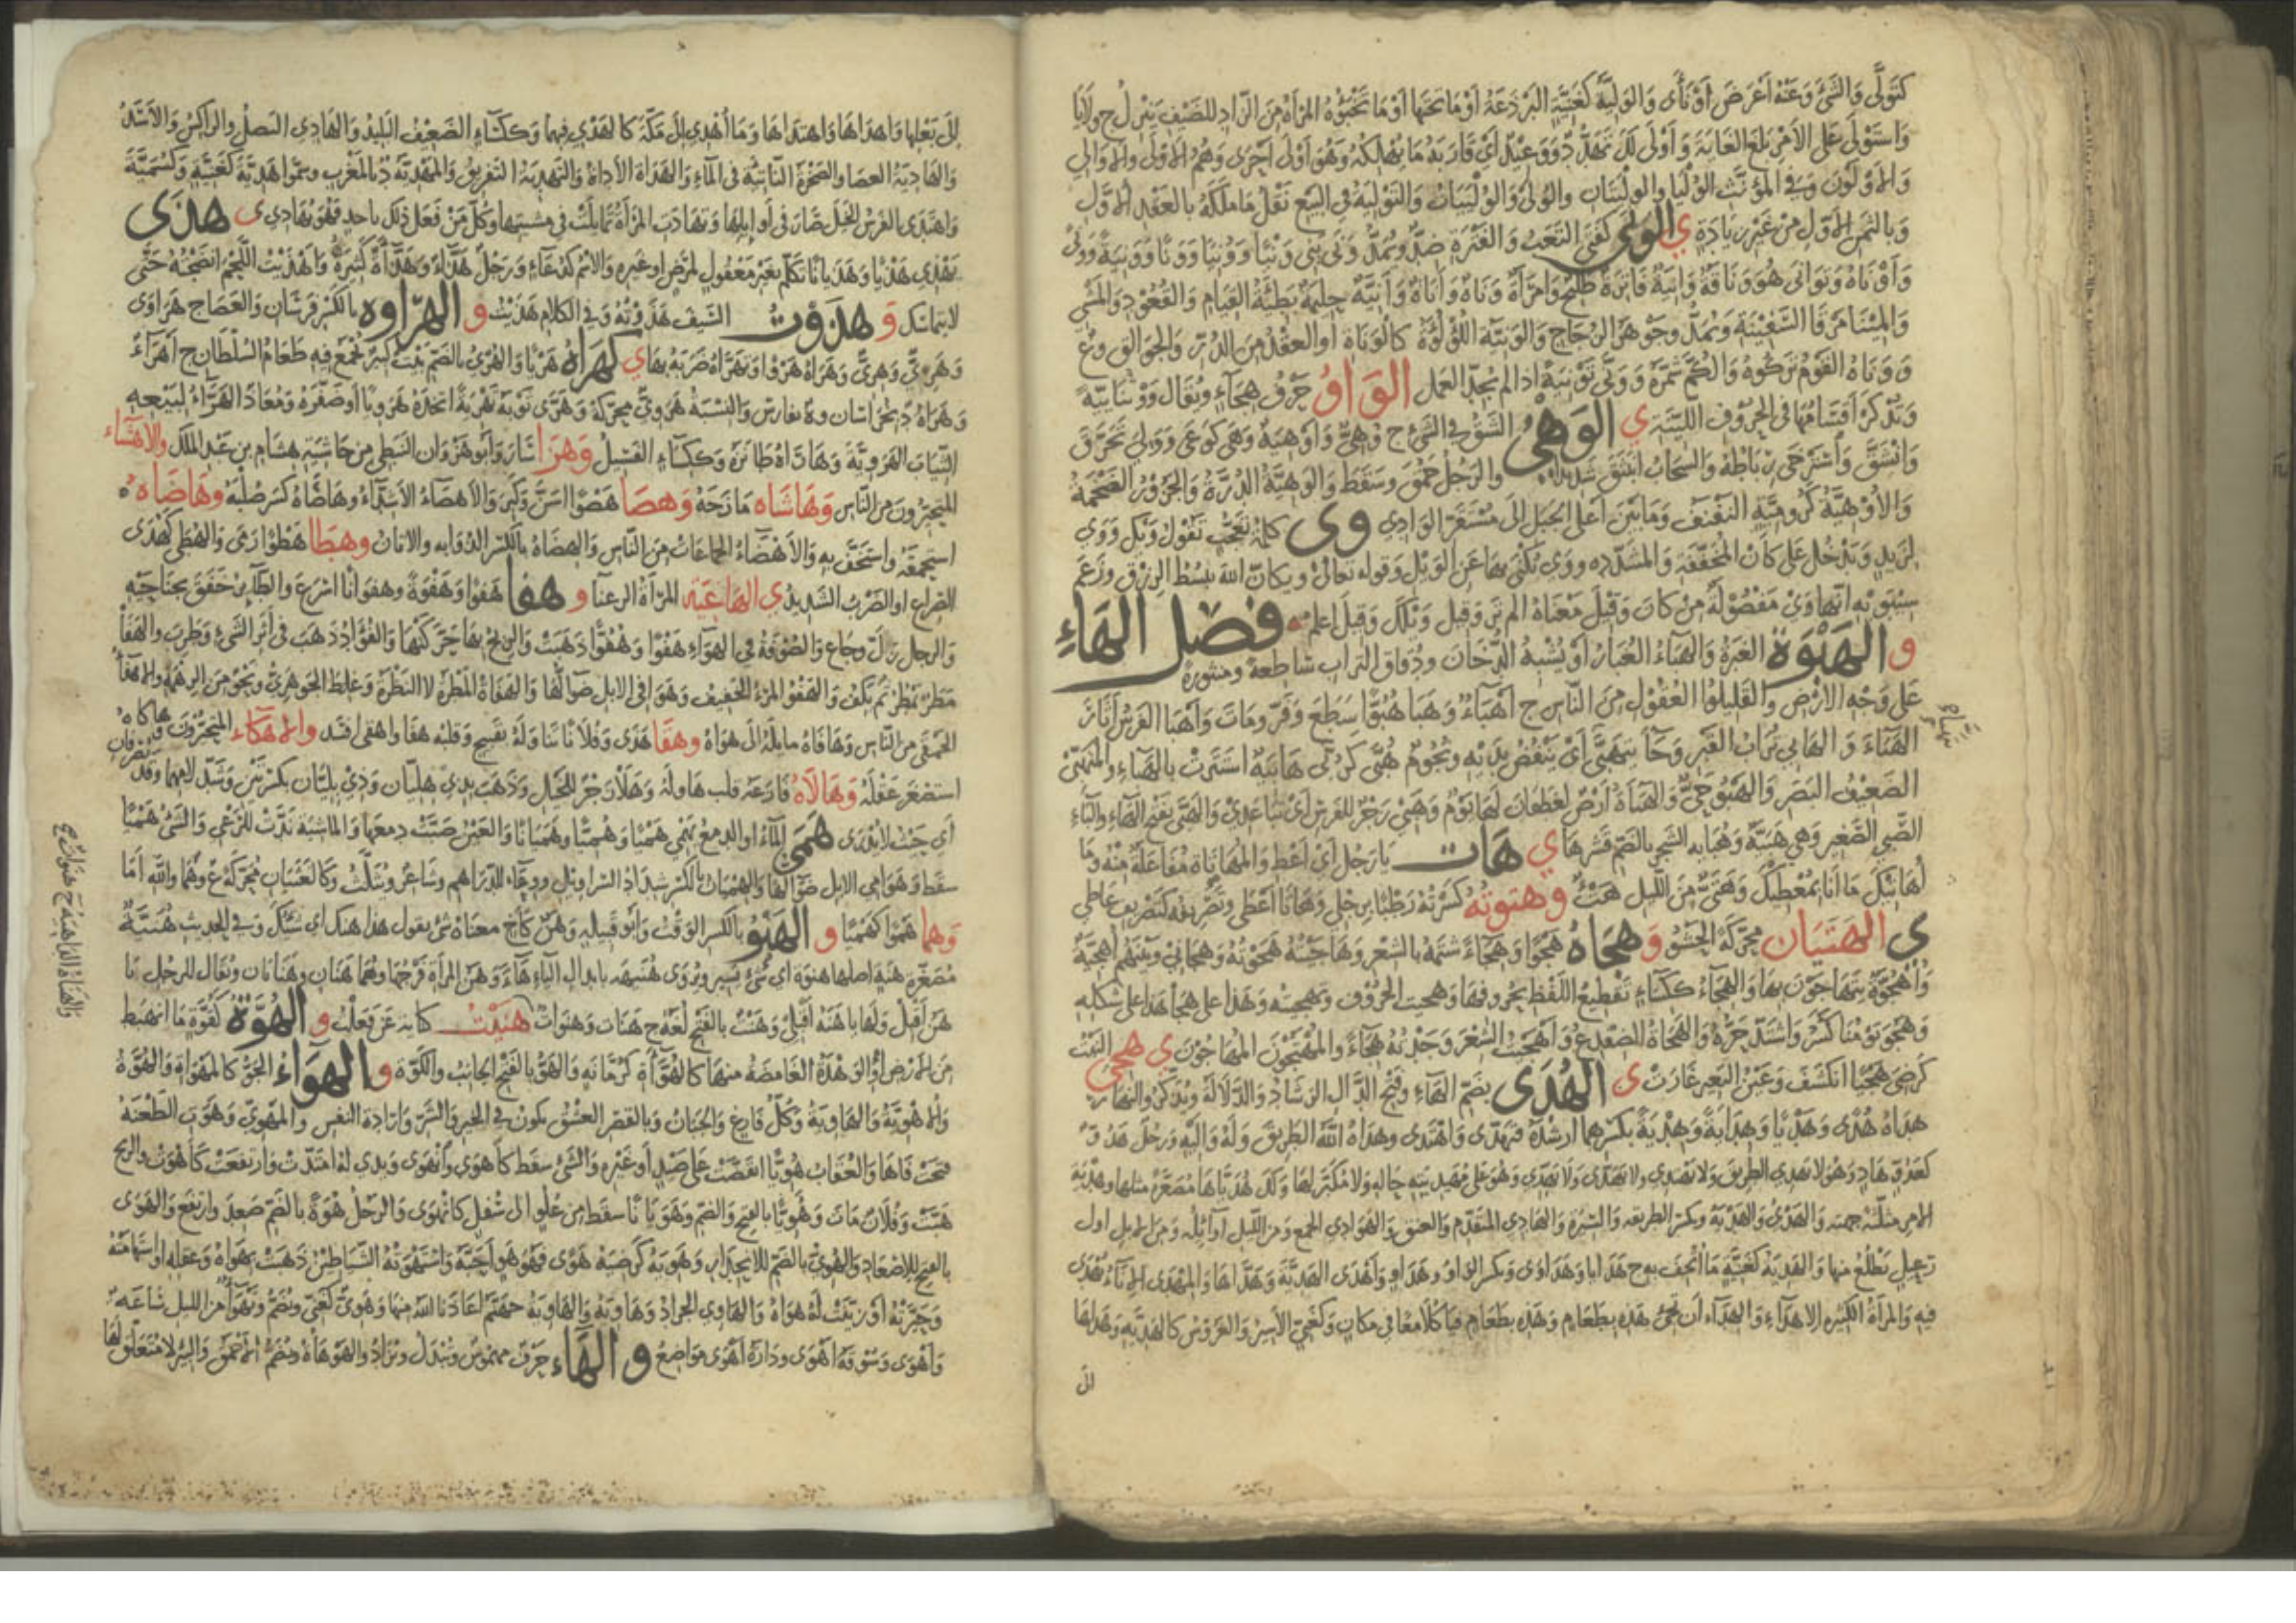 كتولى والشئ وعنه أعرض أو نأى والولية كغنية البرذعة أو ما تحتها أو ما تخبؤه المرأة من الزاد للضيف ينزل ج ولايا
واستولى على الأمر بلغ الغاية وأولى لك تهدد ووعيد أى قاربه ما يهلكه وهو أولى أحرى وهم الاولى والاوالي
والاولون وفي المؤنث الوليا والوليتان والولى والوليات والتولية في البيع نقل ما ملكه بالعقد الاول
وبالثمن الاول من غير زيادة ي الونى كفتى التعب والفترة ضد ويمد ونى ينى ونيا وونيا وونا وونية وونى
وأوناه وتوانى هو وناقة وانية فاترة طليح وامرأة وناة وأناة وأنية حليمة بطيئة القيام والقعود والمشي
والمينا مرفا السفينة ويمد وجوهر الزجاج والونية اللؤلؤة كالوناة أو العقد من الدر والجوالق وع
ووناه القوم تركوه والكم شمره وونى تونية اذا لم يجد العمل الواو حرف هجاء ويقال وو ثنائية
وتذكر أقسامها في الحروف اللينة ي الوهي الشق في الشئ ج وهي وأوهية وهى كوعى وولي تخرق
وانشق واسترخى رباطه والسحاب انبثق شديدا والرجل حمق وسقط والوهية الدرة والجزور الضخمة
والأوهية كرومية النفنف وما بين أعلى الجبل الى مستقر الوادي وي كلمة تعجب تقول ويك ووي
لزيد وتدخل على كأن المخففة والمشددة ووي يكنى بها عن الويل وقوله تعالى ويكان الله يبسط الرزق وزعم
سيبويه انها وي مفصولة من كان وقيل معناه الم تر وقيل ويلك وقيل اعلم فصل الهاء
و الهبوة الغبرة والهباء الغبار أو يشبه الدخان ودقاق التراب ساطعة ومنثورة
على وجه الارض والقليلوا العقول من الناس ج أهباء وهبا هبوا سطع وفر ومات وأهبا الفرس أثار
الهباء والهابي تراب القبر وجا يتهبى أى ينفض يديه ونجوم هبى كربى هابية استترت بالهباء والمتهبى
الضعيف البصر والهبو حي والهباة أرض لغطفان لها يوم وهبى زجر للفرس أي تباعدي والهبى بفتح الهاء والباء
الصبي الصغير وهي هبية وهباية الشجر بالضم قشرها ي هات يا رجل أى أعط والمهاتاة مفاعلة منه وما
أهاتيك ما أنا بمعطيك وهتي من الليل هت وهتوته كسرته وطئا برجلي وهاتا أعطى وتصريفه كتصريف عاطى
ي الهتيان محركة الحشو وهجاه هجوا وهجاء شتمه بالشعر وهاجيته هجوته وهجاني وبينهم أهجية
وأهجوة يتهاجون بها والهجاء ككساء تقطيع اللفظة بحروفها وهجيت الحروف وتهجيته وهذا على هجا هذا على شكله
وهجو يومنا كسر واشتد حره والهجاة الضفدع وأهجيت الشعر وجدته هجاء والمهتجون المهاجون ي هجي البيت
كرضى هجيا انكشف وعين البعير غارت ى الهدى بضم الهاء وفتح الدال الرشاد والدلالة ويذكر والنهار
هداه هدى وهديا وهداية وهدية بكسرهما أرشده فتهدى واهتدى وهداه الله الطريق وله واليه ورجل هدو
كعدو هاد وهو لا يهدي الطريق ولا يهتدي ولا يهدي ولا يهدي وهو على مهيديته حاله ولا مكبر لها ولك هدياها مصغرة مثلها وهدية
الامر مثلثة جهته والهدي والهدية ويكسر الطريقة والسيرة والهادي المتقدم والعنق والهوادي الجمع ومن الليل أوائله ومن الابل اول
رعيل يطلع منها والهدية كغنية ما أتحف به ج هدايا وهداوى ويكسر الواو وهداو وأهدى الهدية وهداها والمهدى الاناء يهدى
فيه والمرأة الكثيرة الاهداء والهداء أن تجئ هذه بطعام وهذه بطعام فتأكلا معا في مكان وكغني الأسير والعروس كالهدية وهداها
الى
الى بعلها وأهداها واهتداها وما أهدي الى مكة كالهدي فيهما وككساء الضعيف البليد والهادي النصل والراكس والاسد
والهادية العصا والصخرة الناتئة في الماء والهداة الأداة والتهدية التفريق والمهدية د بالمغرب وسموا هدية كغنية وكسمية
واهتدى الفرس الخيل صار في أوائلها وتهادت المرأة تمايلت في مشيتها وكل من فعل ذلك باحد فهو يهاديه ى هذى
يهذي هذيا وهذيانا تكلم بغير معقول لمرض أو غيره والاسم كدعاء ورجل هذاء وهذاءة كثيره وأهذيت اللحم انضجته حتى
لا يتماسك و هذوت السيف هذذته وفي الكلام هذيت و الهراوة بالكسر فرسان والعصا ج هراوى
وهري وهري وهراه هروا وتهراه ضربه بها ي كهراه هريا والهري بالضم بيت كبير يجمع فيه طعام السلطان ج أهراء
وهراة د بخراسان وة بفارس والنسبة هروي محركة وهرى ثوبه تهرية اتخذه هرويا أو صفره ومعاذ الهراء لبيعه
الثياب الهروية وهاراه طانزه وككساء الفسيل وهزا سار وأبو هزوان النبطي من حاشية هشام بن عبد الملك والاهساء
المتحيرون من الناس وهاشاه مازحه وهصا هصوا اسن وكبر والأهصاء الأشداء وهاصاه كسر صلبه وهاضاه
استحمقه واستخف به والأهضاء الجماعات من الناس والهضاة بالكسر الذؤابة والاتان وهطا هطوا رمى والهطى كهدى
الصراع او الضرب الشديد ي الهاغية المرأة الرعنا و هفا هفوا وهفوة وهفوانا اسرع والطائر خفق بجناحيه
والرجل زل وجاع والصوفة في الهواء هفوا وهفوا ذهبت والريح بها حركتها والفؤاد ذهب في أثر الشئ وطرب والهفا
مطرة تمطر ثم تكف والهفو المرء الخفيف وهوافي الابل ضوالها والهفاة المطرة لا النظرة وغلط الجوهري ونحو من الرهمة والاهفاء
الحمقى من الناس وهافاه مايله الى هواه وهقا هذى وفلانا تناوله بقبيح وقلبه هفا واهقى افسد والاهكاء المتحيرون وهاكاه
استصغر عقله وهالاه فازعه قلب هاوله وهلا زجر للخيل وذهب بذي هليان وذي بليان بكسرتين وشد لامهما وقد يصرفان
أي حيث لا يدرى همى الماء والدمع يهمي هميا وهميا وهميانا والعين صبت دمعها والماشية ندت للرعي والشئ هميا
سقط وهوامي الابل ضوالها والهميان بالكسر شداد السراويل ووعاء للدراهم وشاعر ويثلث وكالغثيان محركة ع وهما والله أما
وهما هموا كهميا و الهنو بالكسر الوقت وأبو قبيلة وهن كأخ معناه شئ يقول هذا هنك أي شيئك وفي الحديث هنية
مصغرة هنة أصلها هنوة أي شئ يسير ويروى هنيهة بابدال الياء هاء وهن المرأة فرجها وهما هنان وهنانان ويقال للرجل يا
هن أقبل ولها يا هنة أقبلي وهنت بالفتح لغة ج هنات وهنوات هنيت كناية عن فعلت و الهوة كقوة ما انهبط
من الارض أو الوهدة الغامضة منها كالهواءة كرمانة والهو بالفتح الجانب والكوة و الهواء الجو كالمهواة والهوة
والاهوية والهاوية وكل فارغ والجبان وبالقصر العشق يكون في الخير والشر وارادة النفس والمهوي وهوت الطعنة
فتحت فاها والعقاب هويا انقضت على صيد أو غيره والشئ سقط كأهوى وانهوى ويدي له امتدت وارتفعت كأهوت والريح
هبت وفلان مات وهويا بالفتح والضم وهويانا سقط من علو الى سفل كانهوى والرجل هوة بالضم صعد وارتفع والهوى
بالفتح للاصعاد والهوي بالضم للانحدار وهويه كرضيه هوى فهو هو أحبه واستهوته الشياطين ذهبت بهواه وعقله أو استهامته
وحيرته أو زينت له هواه والهاوي الجراد وهاوية والهاوية جهنم أعاذنا الله منها وهوي كغني ويضم وتهواء من الليل ساعة
وأهوى وسوقة أهوى ودارة أهوى مواضع و الهاء حرف مهموس وتبدل وتزاد والهوهاة وتضم الاحمق والبئر لا متعلق لها